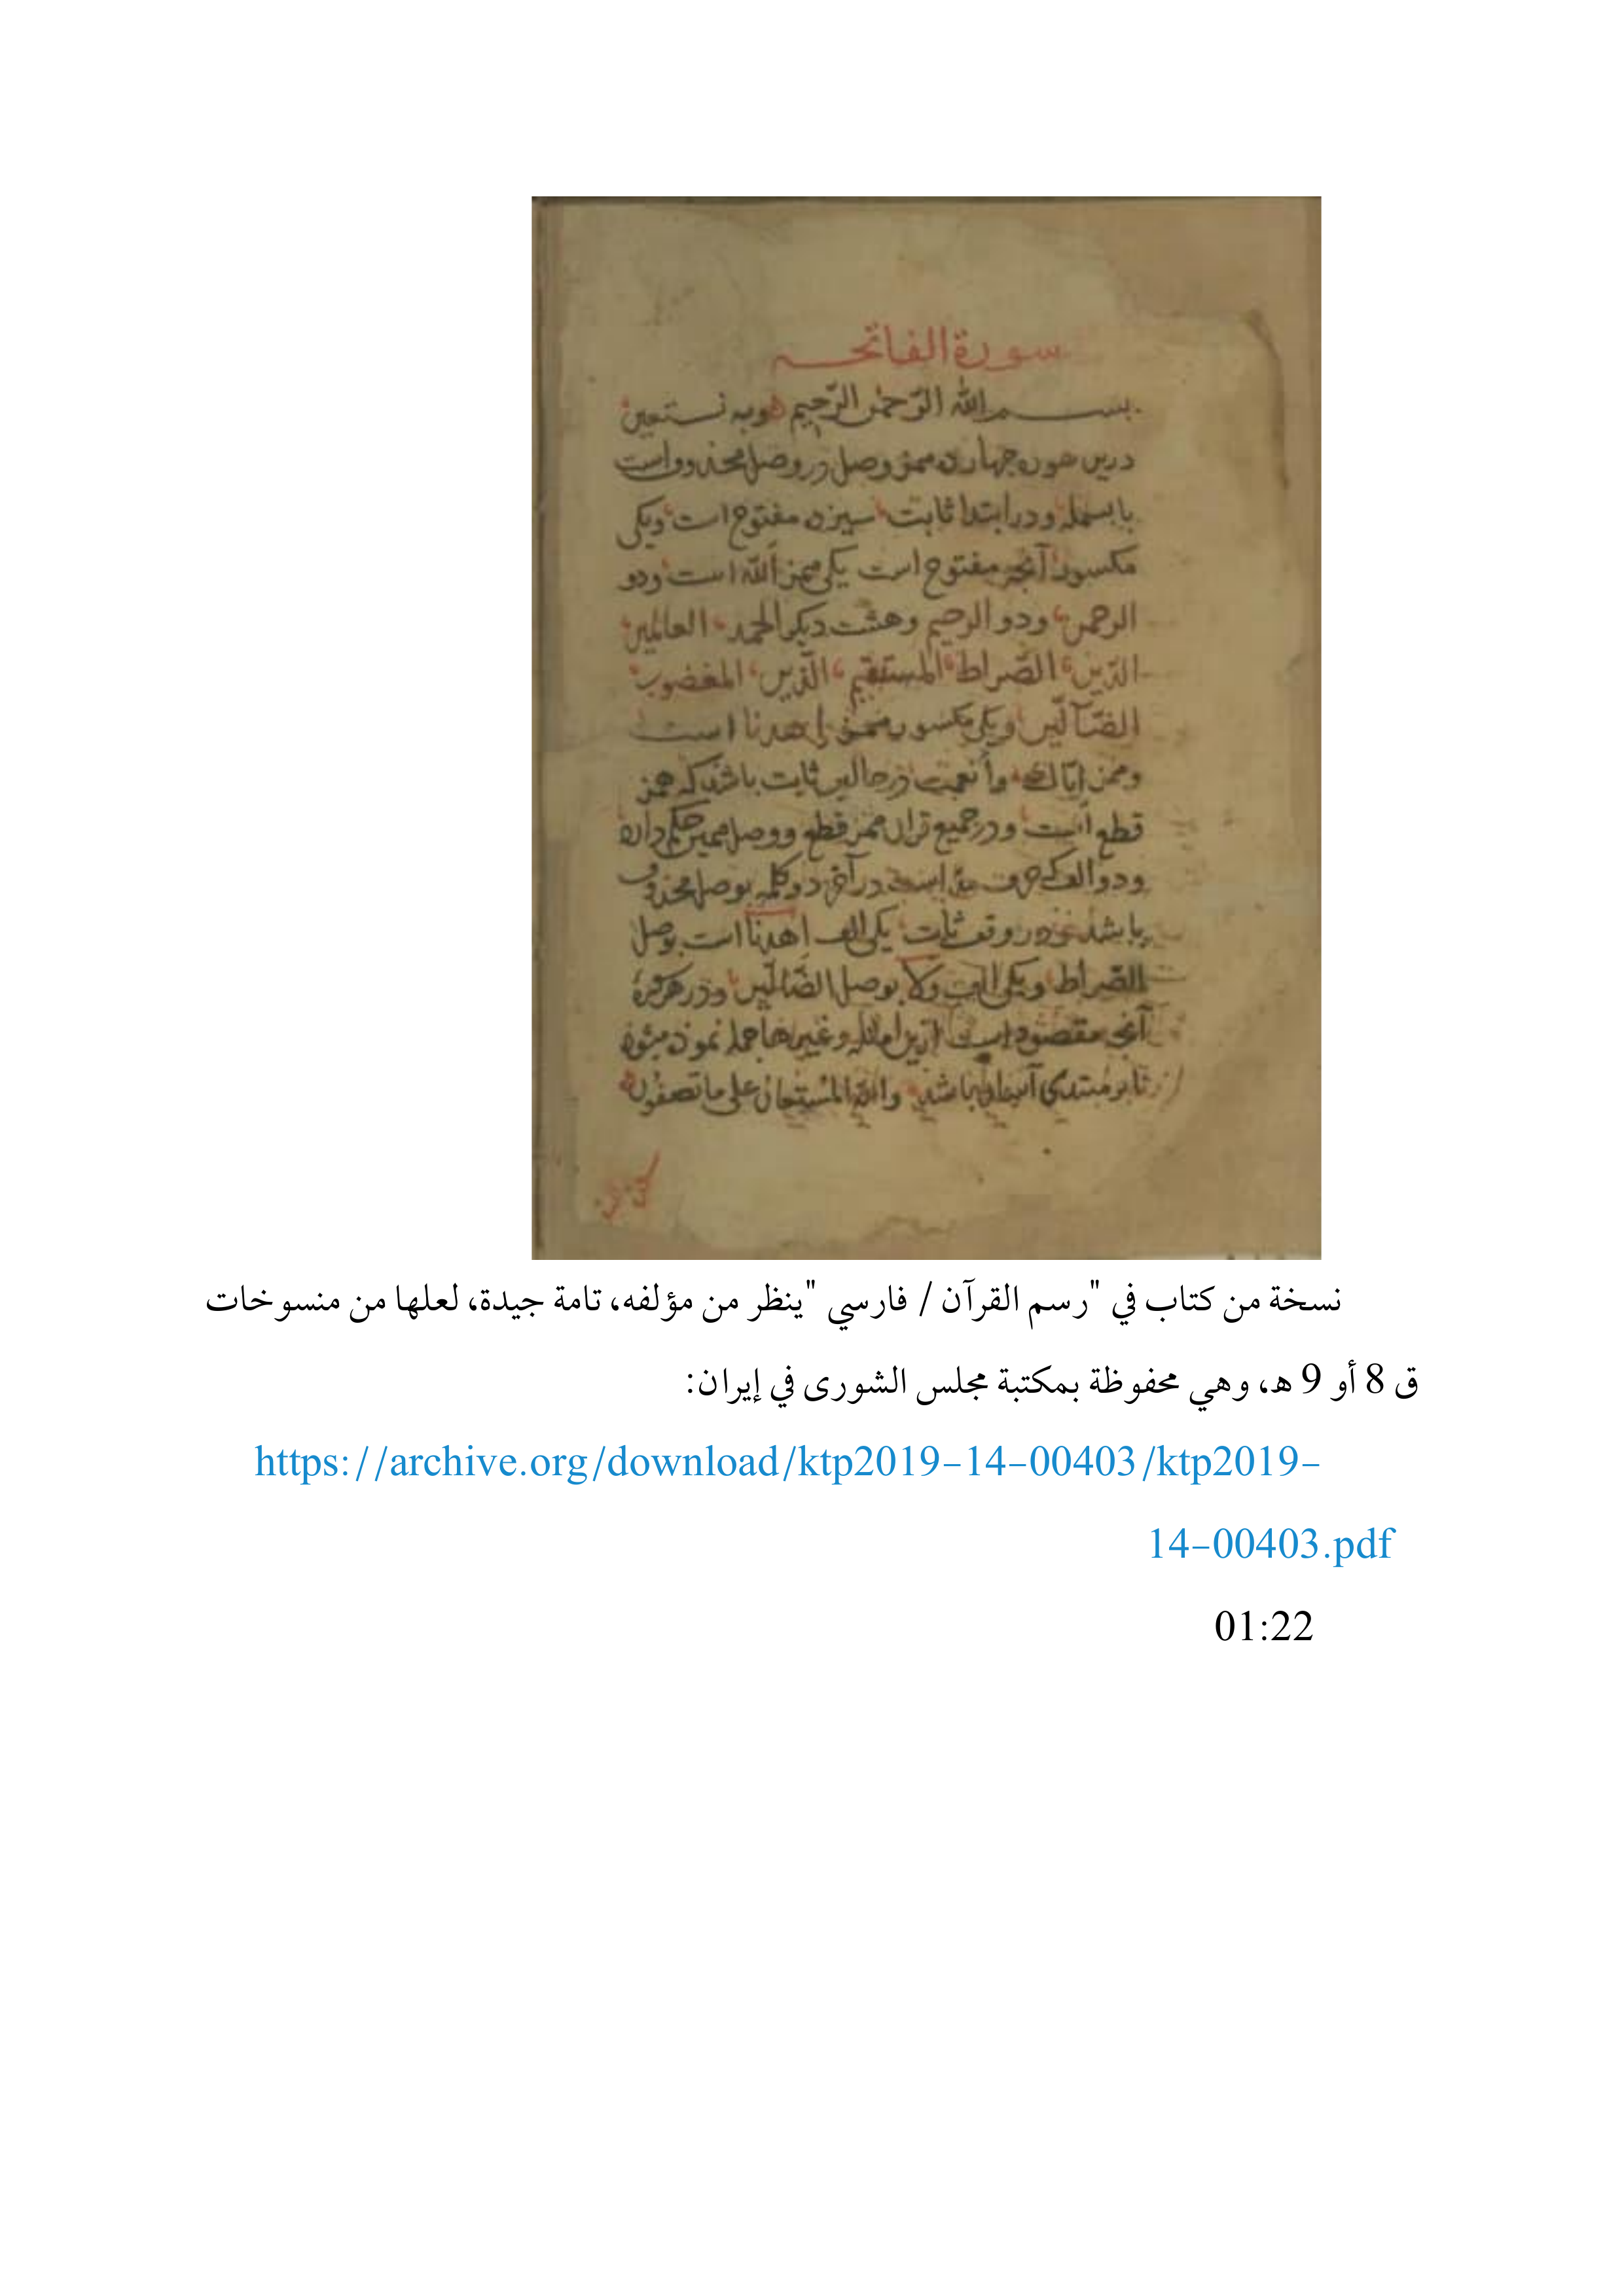 سورة الفاتحه
بسم الله الرّحمٰن الرّحيم وبه نستعين
درين سوره چهارده همزه وصل در وصل محذوف است
با بسمله ودر ابتدا ثابت سيزده مفتوح است ويكى
مكسور آنچه مفتوح است يكى همزه أللّه است ودو
الرحمن ودو الرحيم وهشت ديكر الحمد العالمين
الدّين الصّراط المستقيم الّذين المغضوب
الضّآلّين ويكى مكسور همزه اهدنا است
وهمزه إيّاك وأنعمت در حالين ثابت باشد كه همزه
قطع است ودر جميع قرآن همزه قطع ووصل همين حكم دارد
ودو الف كه حرف مدّ است در آخر دو كلمه بوصل محذوف
باشد ودر وقف ثابت يكى الف اهدنا است بوصل
الصّراط ويكى الف ولا بوصل الضّالّين ودر هر
آنچه مقصود است ازين وغيرها جمله نموده
تا بر مبتدى آسان باشد والله المستعان على ما تصفون
نسخة من كتاب في "رسم القرآن / فارسي "ينظر من مؤلفه، تامة جيدة، لعلها من منسوخات
ق 8 أو 9 هـ، وهي محفوظة بمكتبة مجلس الشورى في إيران:
https://archive.org/download/ktp2019-14-00403/ktp2019-
14-00403.pdf
01:22